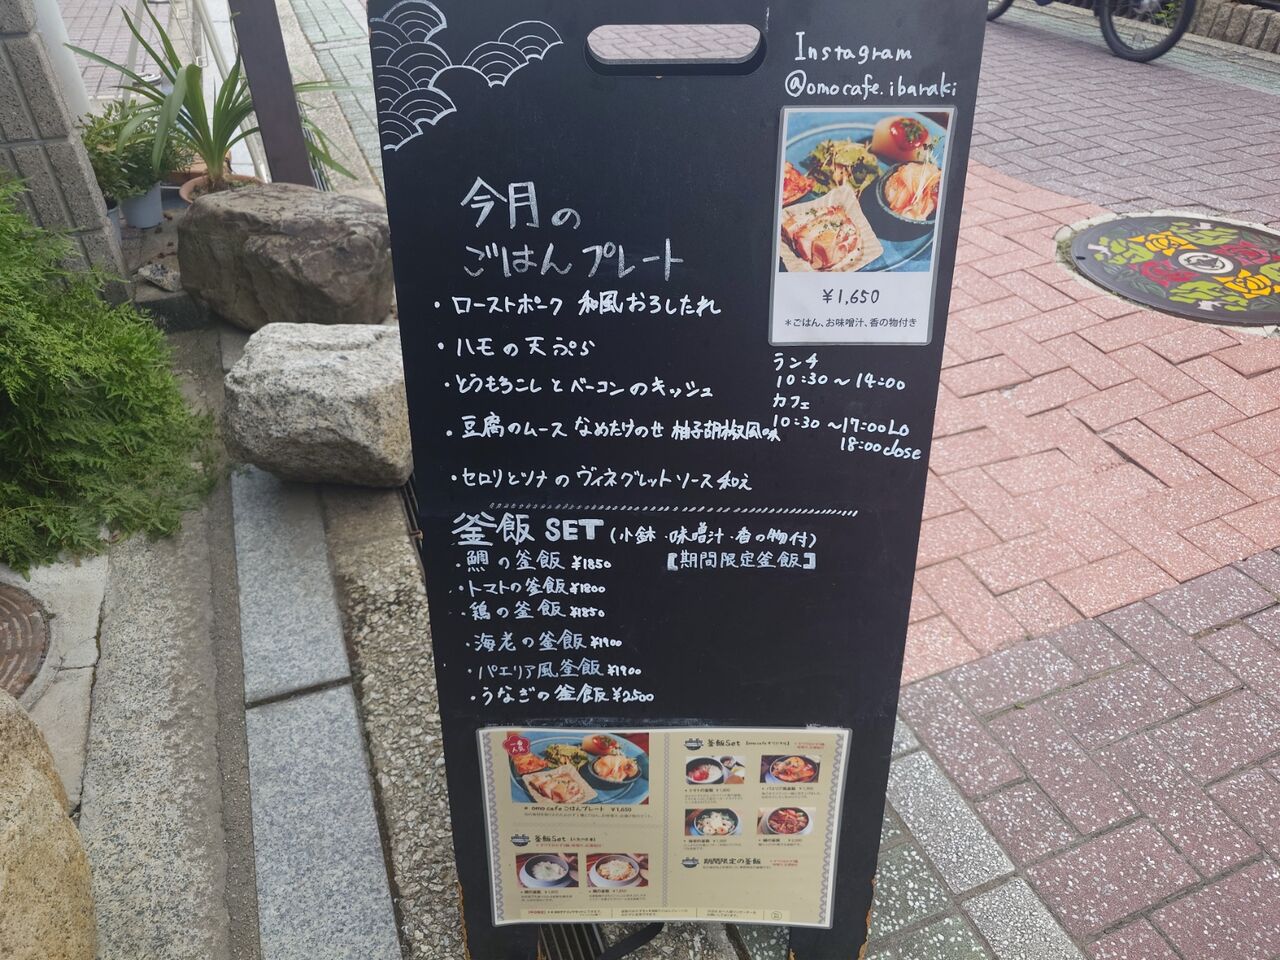 Instagram
@omocafe.ibaraki
今月の
ごはんプレート
・ローストポーク 和風おろしたれ
・ハモの天ぷら
・とうもろこしとベーコンのキッシュ
・豆腐のムース なめたけのせ 柚子胡椒風味
・セロリとツナのヴィネグレットソース和え
¥1,650
*ごはん、お味噌汁、香の物付き
ランチ
10:30～14:00
カフェ
10:30～17:00LO
18:00close
釜飯 SET (小鉢・味噌汁・香の物付)
・鯛の釜飯 ¥1850
【期間限定釜飯】
・トマトの釜飯 ¥1800
・鶏の釜飯 ¥1850
・海老の釜飯 ¥1900
・パエリア風釜飯 ¥1900
・うなぎの釜飯 ¥2500
一番
人気
omo cafe ごはんプレート ¥1,650
釜飯Set
釜飯Set
期間限定の釜飯